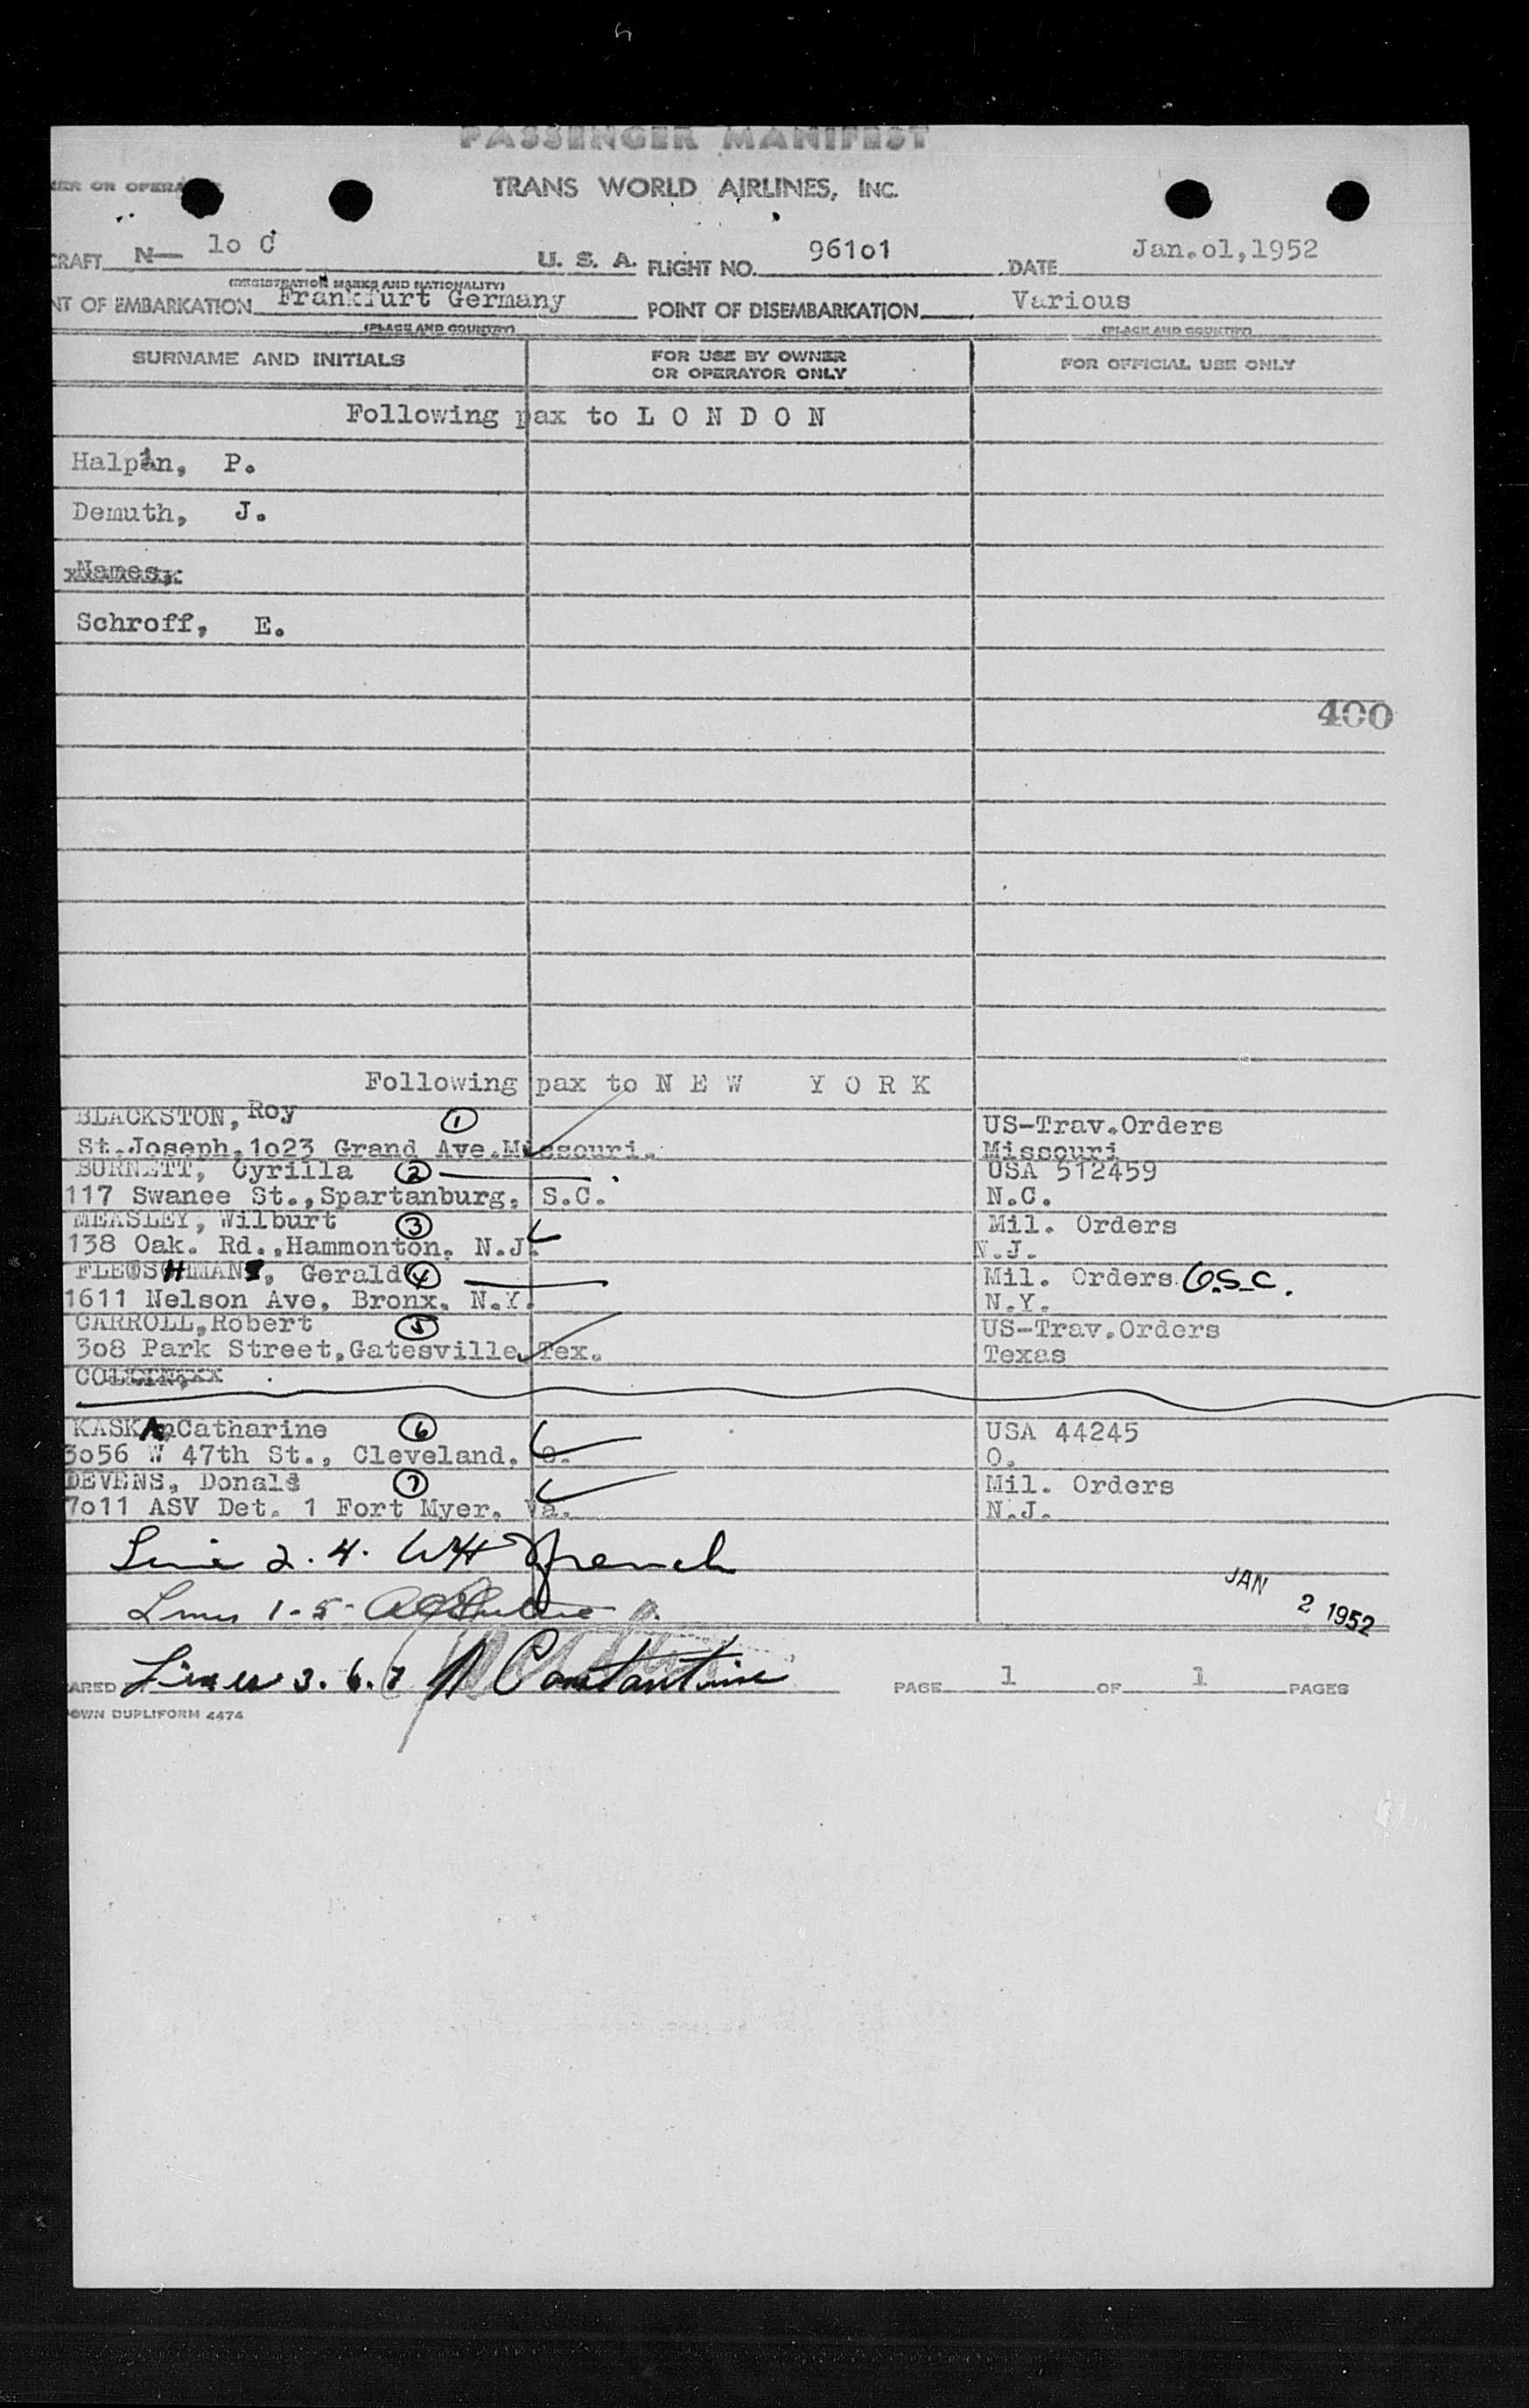 PASSENGER MANIFEST
TRANS WORLD AIRLINES, INC.
ER OR OPERA
CRAFT N— 1o C U. S. A. FLIGHT NO. 961o1 DATE Jan.o1,1952
(REGISTRATION MARKS AND NATIONALITY)
NT OF EMBARKATION Frankfurt Germany POINT OF DISEMBARKATION Various
(PLACE AND COUNTRY) (PLACE AND COUNTRY)
SURNAME AND INITIALS FOR USE BY OWNER OR OPERATOR ONLY FOR OFFICIAL USE ONLY
Following pax to L O N D O N
Halpin, P.
Demuth, J.
Names,
Schroff, E.
400
Following pax to N E W Y O R K
BLACKSTON, Roy 1 US-Trav.Orders
St.Joseph,1o23 Grand Ave.Missouri. Missouri
BURNETT, Cyrilla 2 USA 512459
117 Swanee St.,Spartanburg, S.C. N.C.
MEASLEY, Wilburt 3 Mil. Orders
138 Oak. Rd.,Hammonton, N.J. N.J.
Gerald 4 Mil. Orders
1611 Nelson Ave, Bronx, N.Y. N.Y.
CARROLL,Robert 5 US-Trav.Orders
3o8 Park Street,Gatesville, Tex. Texas
Catharine 6 USA 44245
3o56 W 47th St., Cleveland, O. O.
DEVENS, Donald 7 Mil. Orders
7o11 ASV Det. 1 Fort Myer, Va. N.J.
Line 2. 4. WH French
Lines 1-5-
JAN 2 1952
ARED Lines 3. 6. 7 Constantine PAGE 1 OF 1 PAGES
OWN DUPLIFORM 4474